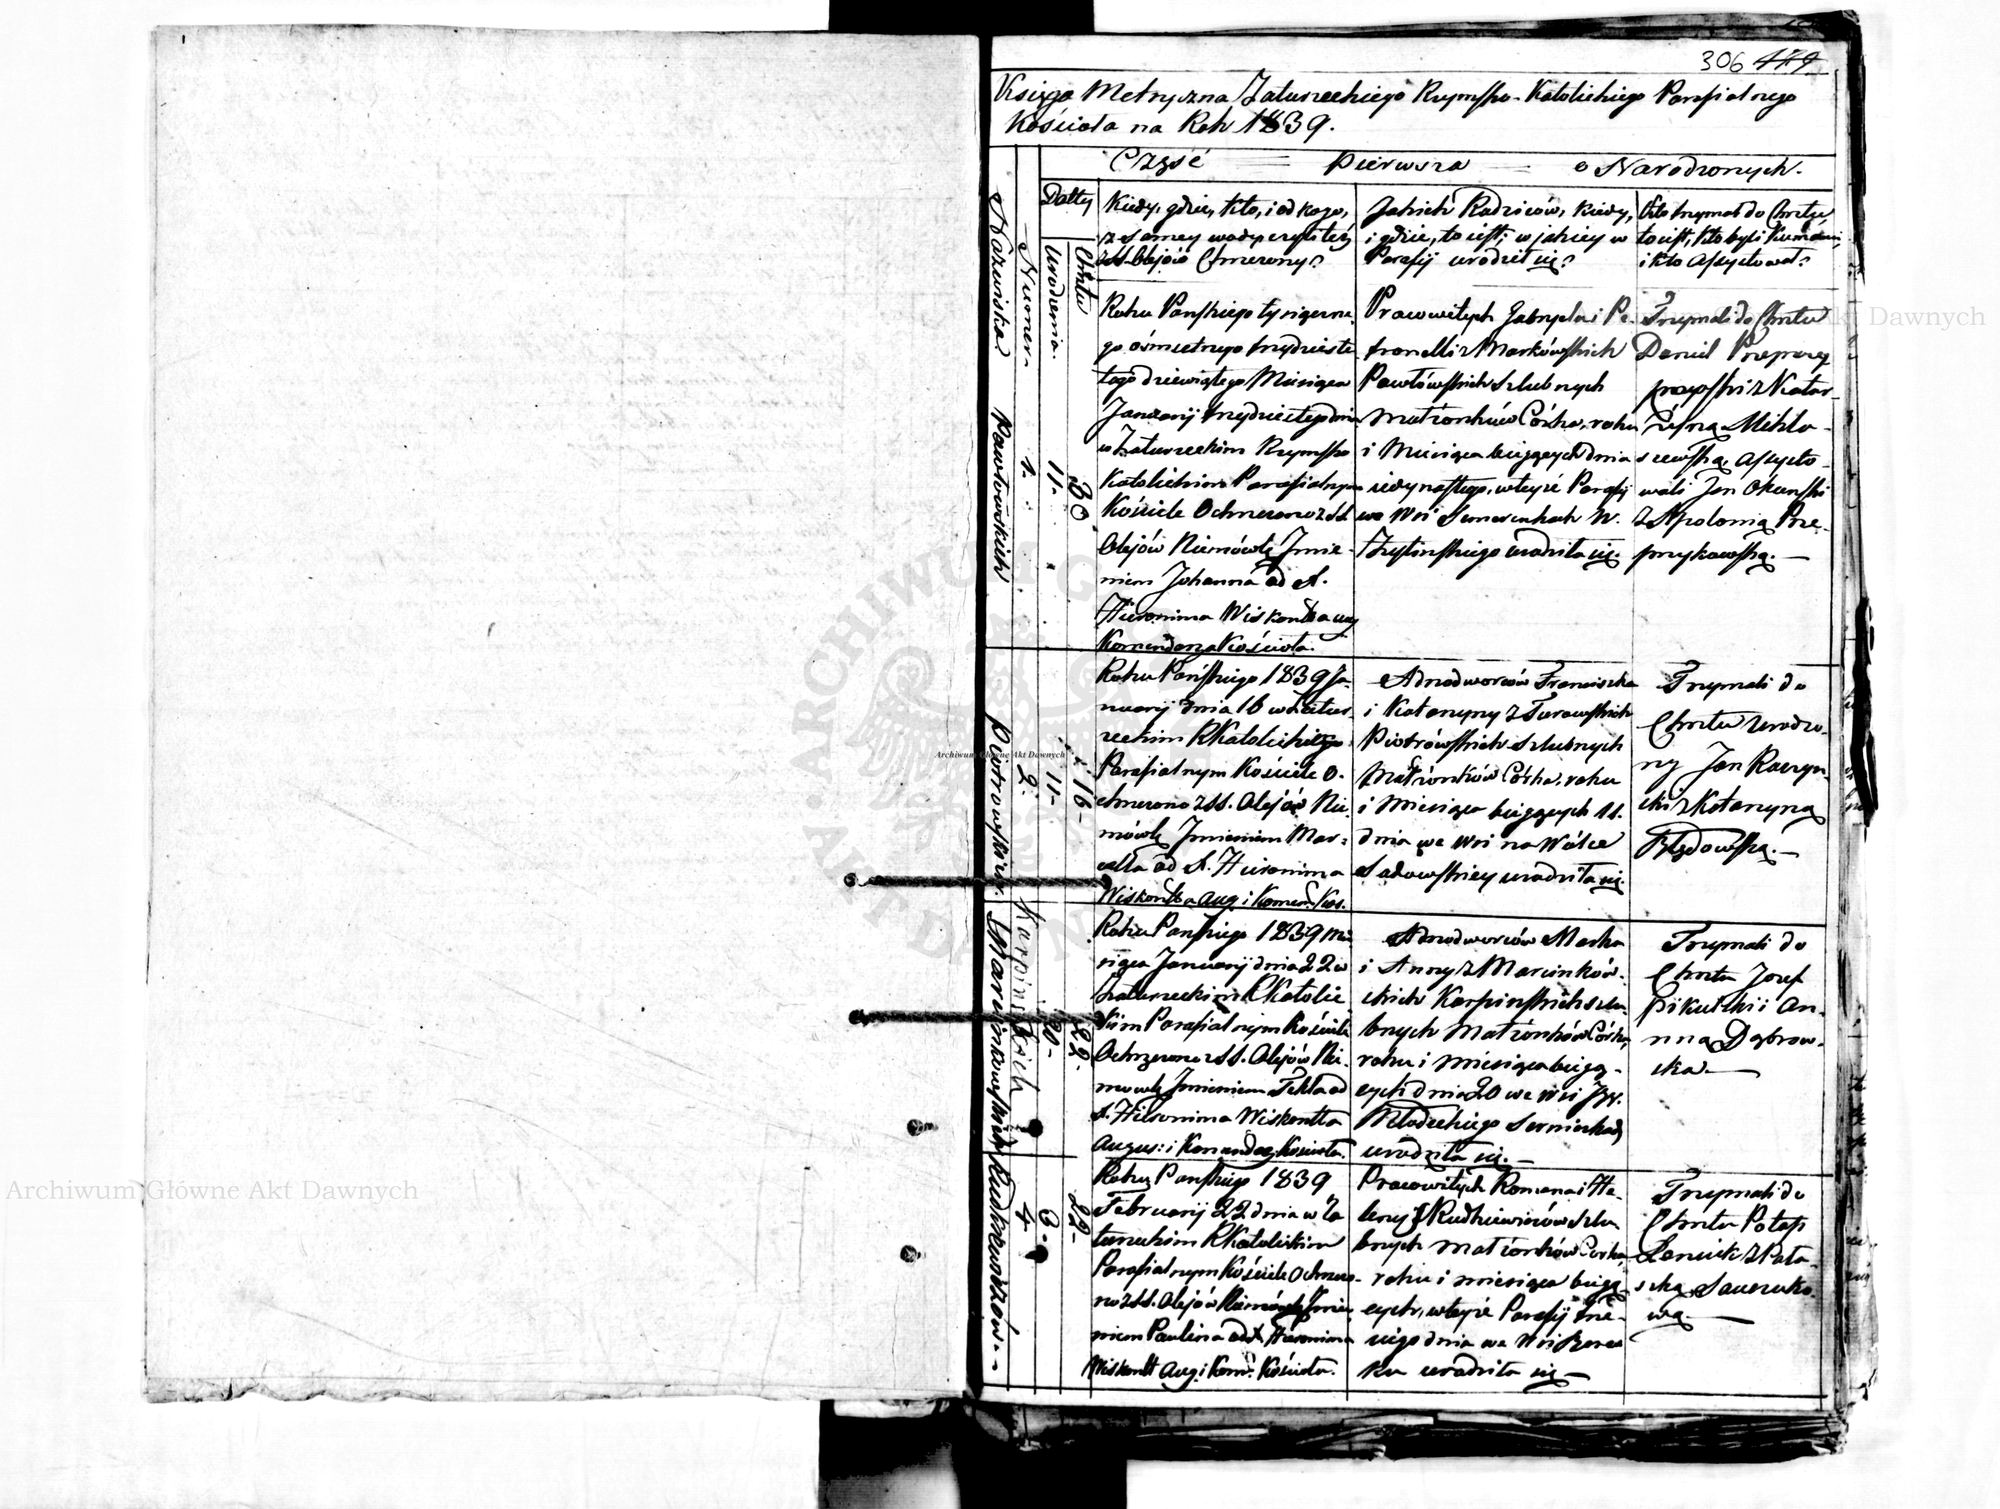 306 419
Księga Metryczna Zaturzeckiego Rzymsko-Katolickiego Parafialnego
Kościoła na Rok 1839.
Część Pierwsza o Narodzonych.
Nazwiska
Numer
Datty
Urodzenia
Chrztu
Kiedy, gdzie, kto, i od kogo,
z samey wody czyli też
z SS. Olejów Chrzczony?
Jakich Rodziców, kiedy,
i gdzie, to iest; w jakiey
Parafij urodził się?
Kto trzymał do Chrztu
to iest, kto byli Kumami,
i kto Assystował?
Pawłowskich
1.
11.
30.
Roku Pańskiego tysiączne-
go ośmsetnego trzydzieste
tego dziewiątego Miesiąca
Januarij trzydziestego dnia
w Zaturzeckim Rzymsko
Katolickim Parafialnym
Kościele Ochrzczono z SS.
Olejów Niemówlę Jmie-
niem Johanna od X.
Hieronima Wiskontta aug
Komendarza Kościoła.
Pracowitych Gabryela i Pe-
tronelli z Markowskich
Pawłowskich szlubnych
Małżonków Córka, roku
i Miesiąca bieżących dnia
jedynastego, w teyże Parafij
we Wsi
urodziła się.
Trzymali do Chrztu
Daniel
z Katar-
żyną Mikła-
szewską, Assysto-
wali Jan Okunski
z Apolonią Prze-
Piotrowskich
2.
11-
16-
Roku Pańskiego 1839 Ja-
nuarij dnia 16 w Zatur-
zeckim RKatolickim
Parafialnym Kościele O-
chrzczono z SS. Olejów Nie-
mówlę Jmieniem Mar-
cella od X. Hieronima
Wiskontta Aug i Komen. Kos.
Adnodworców Franciszka
i Katarzyny z Turowskich
Piotrowskich szlubnych
Małżonków Córka, roku
i miesiąca bieżących 11.
dnia we Wsi na Wólce
Sadowskiey urodziła się.
Trzymali do
Chrztu Urodzo-
ny Jan Raczyń-
ski z Katarzyną
Błędowską.
Karpinskich
Marcinkowskich
20-
22-
Roku Pańskiego 1839 Mie
siąca Januarij dnia 22 w
Zaturzeckim RKatolic
kim Parafialnym Kościele
Ochrzczono z SS. Olejów Nie-
mowlę Jmieniem Tekla od
X. Hieronima Wiskontta
August: i Komendarz Kościoła.
Adnodworców Marka
i Anny z Marcinków-
skich Karpinskich szlu-
bnych Małżonków Córka,
roku i miesiąca bieżą-
cych dnia 20 we Wsi JW.
Młodeckiego
urodziła się.
Trzymali do
Chrztu Jozef
Pikulski i An-
ną Dąbrow-
ska.
Rudkiewiczów
4
3.
22-
Roku Pańskiego 1839
Februarij 22 dnia w Za
turzeckim RKatolickim
Parafialnym Kościele Ochrzczo-
no z SS. Olejów Niemówlę Jmie-
niem Paulina od X Hieronima
Wiskontt Aug. i Kom. Kościoła.
Pracowitych Romana i He-
leny Rudkiewiczów szlu
bnych małżonków Corka,
roku i miesiąca bieżą-
cych, w teyże Parafij trze-
ciego dnia we Wsi
urodziła się
Trzymali do
Chrztu Potap
z Pała-
szką Sawczuko
wą.
Archiwum Główne Akt Dawnych